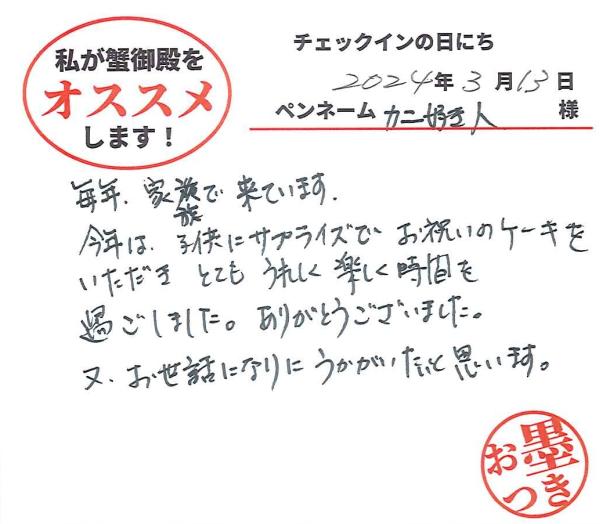 私が蟹御殿を
オススメ
します!
チェックインの日にち
2024年3月13日
ペンネーム カニ好き人 様
毎年、家族で来ています.
族
今年は、子供にサプライズでお祝いのケーキを
いただき とても うれしく楽しく時間を
過ごしました。ありがとうございました。
又、お世話になりにうかがいたいと思います。
お墨つき